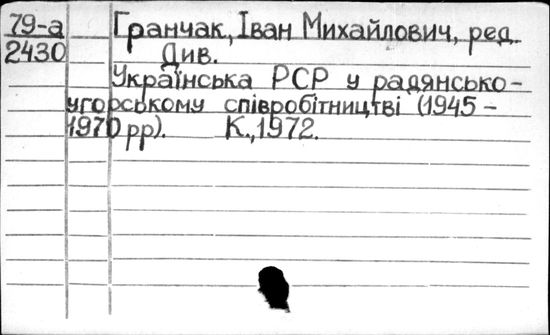 79-а Гранчак, Іван Михайлович, ред.
2430 Див.
Українська РСР у радянсько-
угорському співробітництві (1945-
1970 рр). К., 1972.